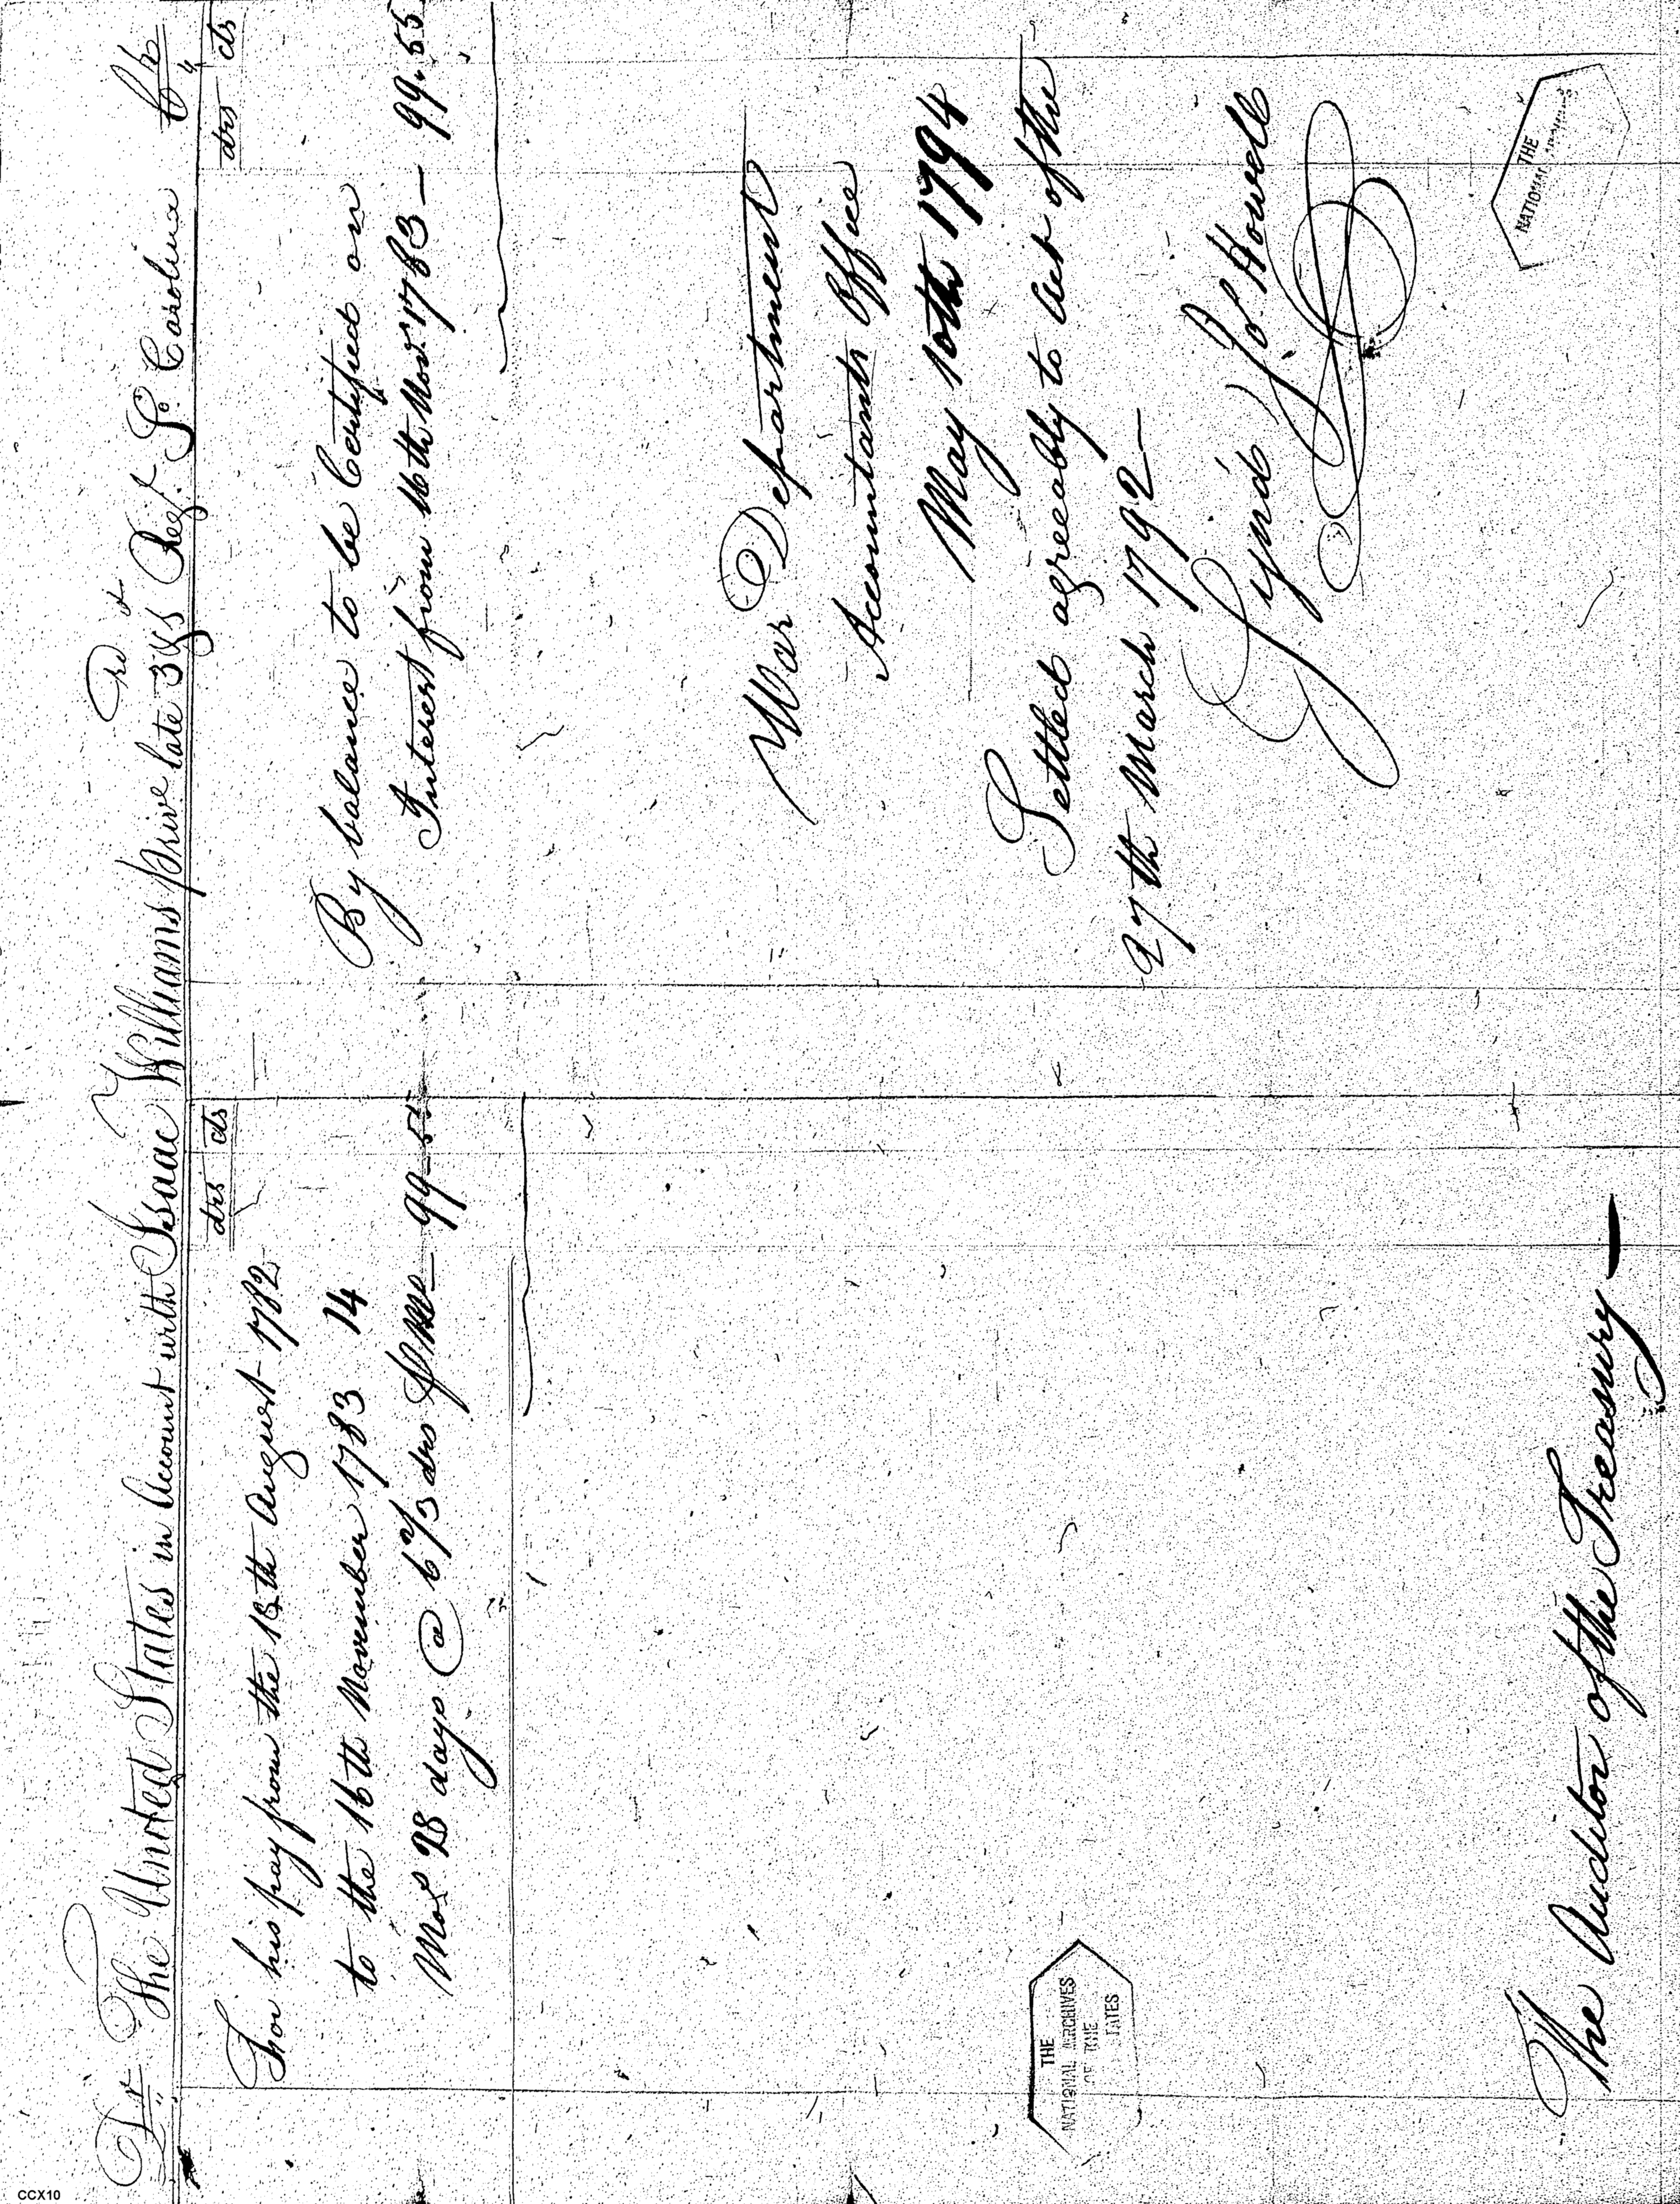 Dr The United States in Account with Isaac Williams Priv.e late 3d S.o Reg.t So. Carolina Cr
drs cts
For his pay from the 18th August 1782
to the 16th November 1783 14
Mos 28 days @ 6 2/3 drs p. Mo 99.55
drs cts
By balance to be Certified on
Interest from 16th Nov.r 1783 — 99.55
War Department
Accountants Office
May 10th 1794
Settled agreeably to Act of the
27th March 1792 —
Sign'd Jo. Howell
The Auditor of the Treasury —
THE
NATIONAL ARCHIVES
OF THE
TATES
THE
NATIONAL
CCX10